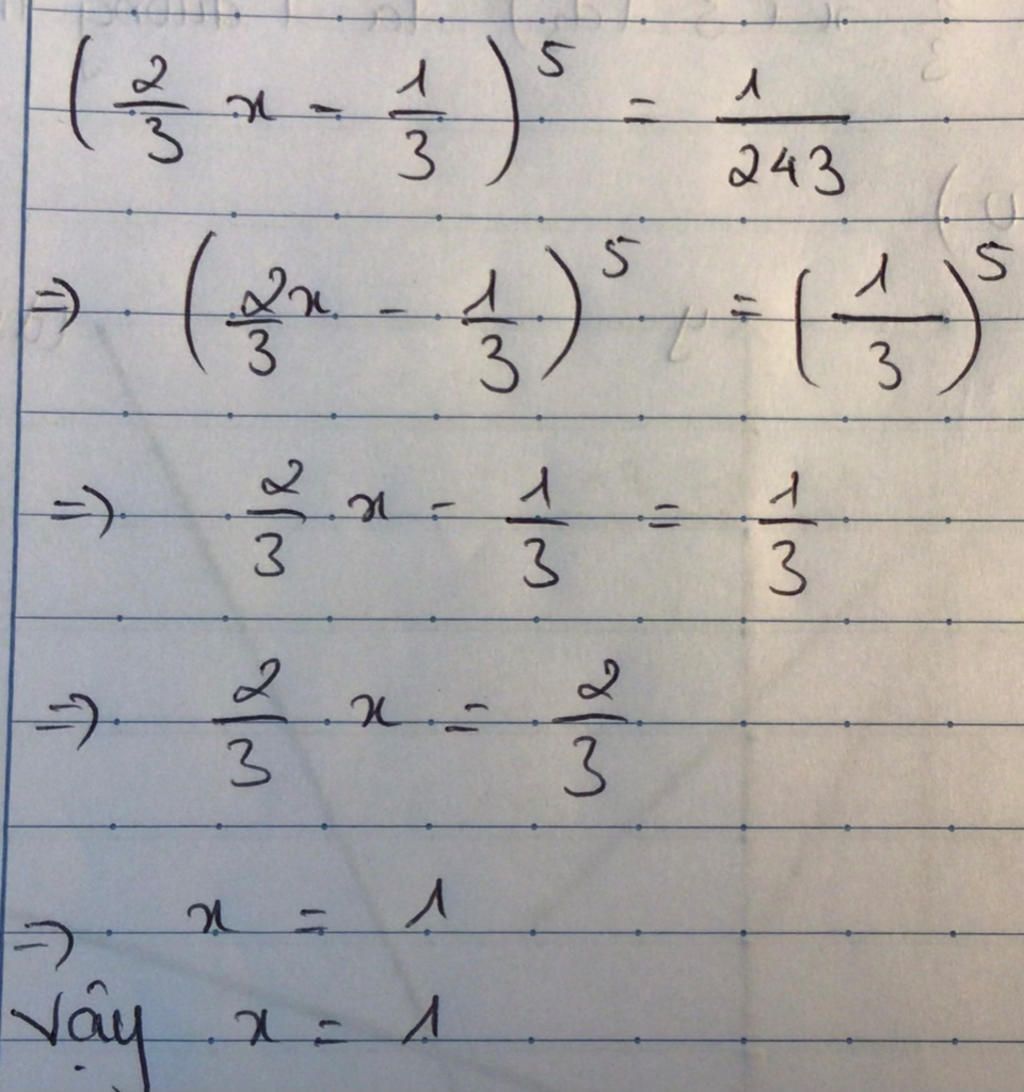 (2/3 x - 1/3)^5 = 1/243
=> (2x/3 - 1/3)^5 = (1/3)^5
=> 2/3 x - 1/3 = 1/3
=> 2/3 x = 2/3
=> x = 1
Vậy x = 1